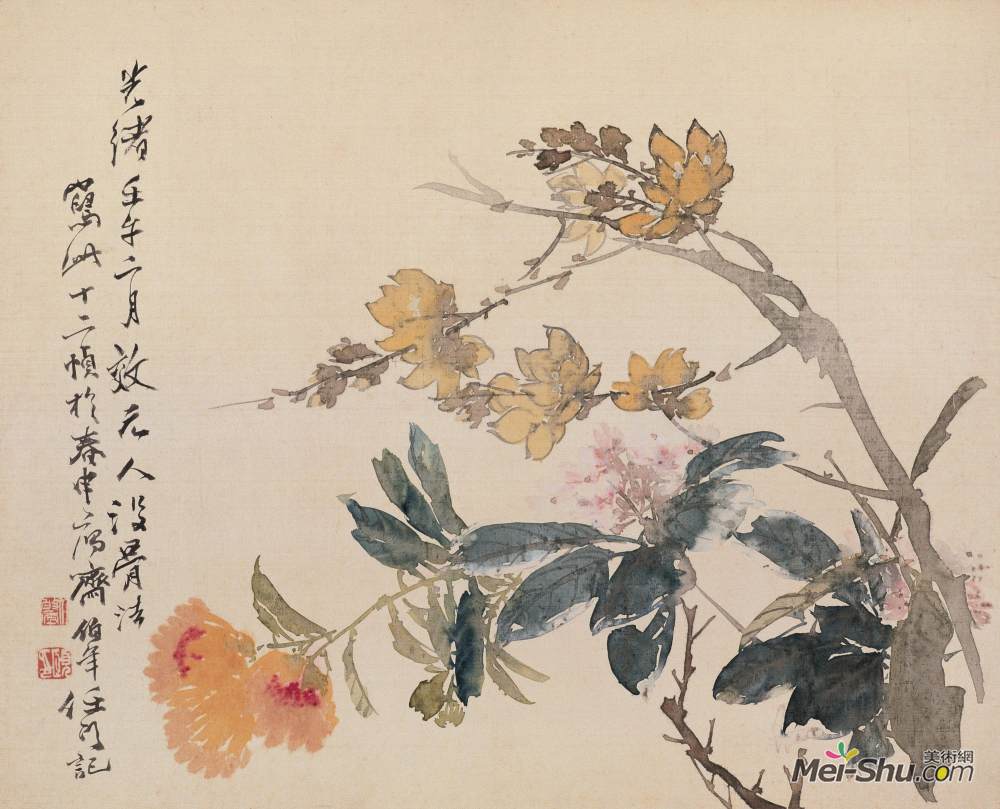 光緒壬午二月效元人没骨法
寫此十二幀於春申寓齋伯年任頤記
美術網
Mei-Shu.com